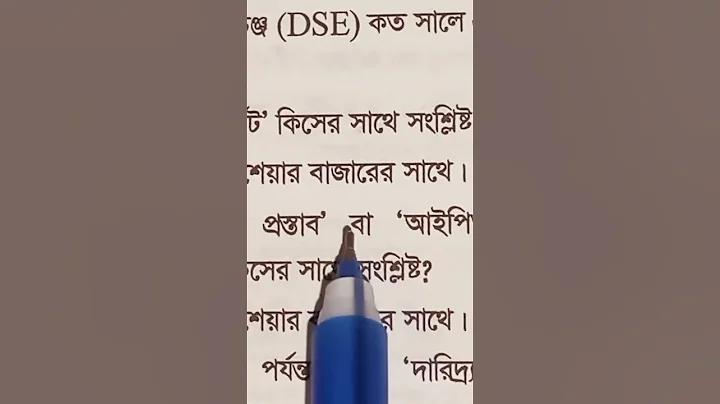 (DSE) কত সালে
কিসের সাথে সংশ্লিষ্ট
শেয়ার বাজারের সাথে।
প্রস্তাব’ বা
সংশ্লিষ্ট?
শেয়ার সাথে।
পর্যন্ত ‘দারিদ্র্য